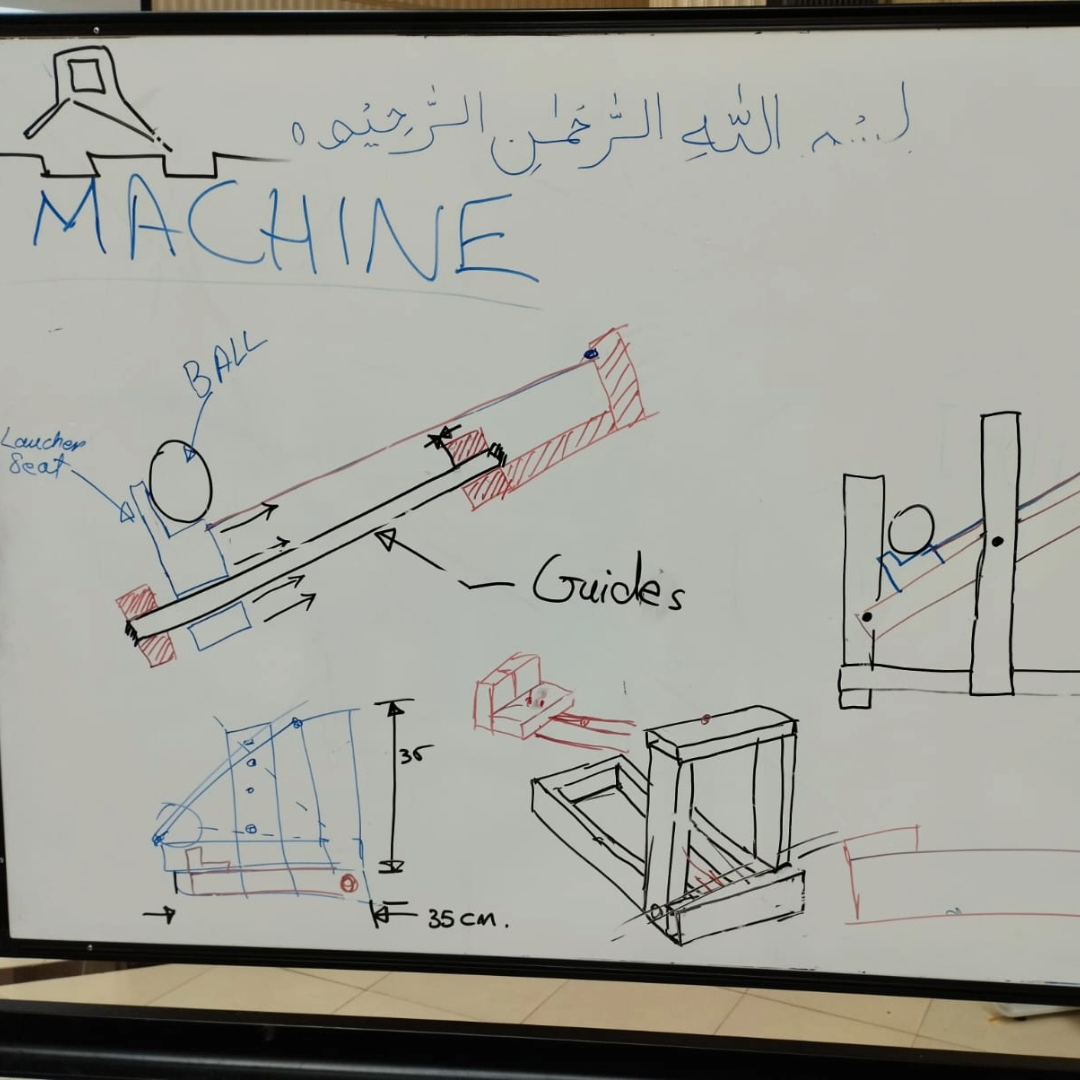 بسم اللّهِ الرَّحمَٰنِ الرَّحِيمِ
MACHINE
BALL
Laucher
Seat
Guides
36
35 cm.